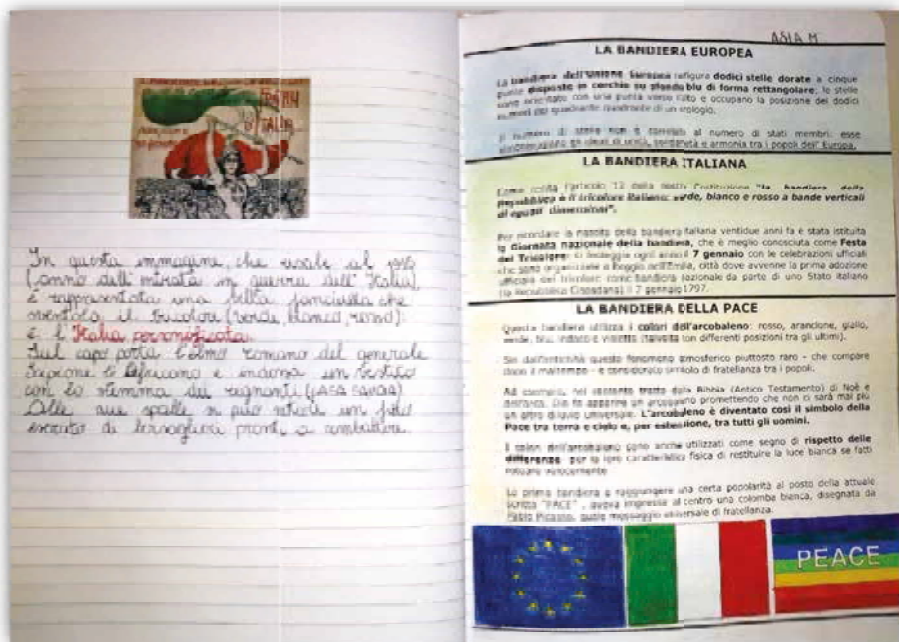 FRATELLI
D'ITALIA
In questa immagine, che risale al 1915
(anno dell'entrata in guerra dell'Italia)
è rappresentata una bella fanciulla che
sventola il tricolore (verde, bianco, rosso):
è l'Italia personificata.
Sul capo porta l'elmo romano del generale
Scipione l'Africano e indossa un vestito
con lo stemma dei regnanti (CASA SAVOIA)
Alle sue spalle si può notare un
esercito di bersaglieri pronti a combattere.
ASIA M
LA BANDIERA EUROPEA
La bandiera dell'Unione Europea raffigura dodici stelle dorate a cinque
punte disposte in cerchio su sfondo blu di forma rettangolare; le stelle
sono orientate con una punta verso l'alto e occupano la posizione dei dodici
numeri del quadrante di un orologio.
Il numero di stelle non è correlato al numero di stati membri: esse
gli ideali di unità, solidarietà e armonia tra i popoli dell'Europa.
LA BANDIERA ITALIANA
Come l'articolo 12 della nostra Costituzione "la bandiera della
repubblica è il tricolore italiano: verde, bianco e rosso a bande verticali
di eguali dimensioni".
Per ricordare la nascita della bandiera italiana ventidue anni fa è stata istituita
la Giornata nazionale della bandiera, che è meglio conosciuta come Festa
del Tricolore: si festeggia ogni anno il 7 gennaio con le celebrazioni ufficiali
che sono organizzate a Reggio nell'Emilia, città dove avvenne la prima adozione
ufficiale del tricolore come bandiera nazionale da parte di uno Stato italiano
(la Repubblica Cispadana) il 7 gennaio 1797.
LA BANDIERA DELLA PACE
Questa bandiera utilizza i colori dell'arcobaleno: rosso, arancione, giallo,
verde, blu, indaco e violetto (talvolta con differenti posizioni tra gli ultimi).
Sin dall'antichità questo fenomeno atmosferico piuttosto raro - che compare
dopo il maltempo - è considerato simbolo di fratellanza tra i popoli.
Ad esempio, nel racconto tratto dalla Bibbia (Antico Testamento) di Noè e
dell'arca, Dio fa apparire un arcobaleno promettendo che non ci sarà mai più
un altro diluvio universale. L'arcobaleno è diventato così il simbolo della
Pace tra terra e cielo e, per estensione, tra tutti gli uomini.
I colori dell'arcobaleno sono anche utilizzati come segno di rispetto delle
differenze per la loro caratteristica fisica di restituire la luce bianca se fatti
ruotare velocemente.
La prima bandiera a raggiungere una certa popolarità al posto della attuale
scritta "PACE", aveva impressa al centro una colomba bianca, disegnata da
Pablo Picasso, quale messaggio universale di fratellanza.
PEACE